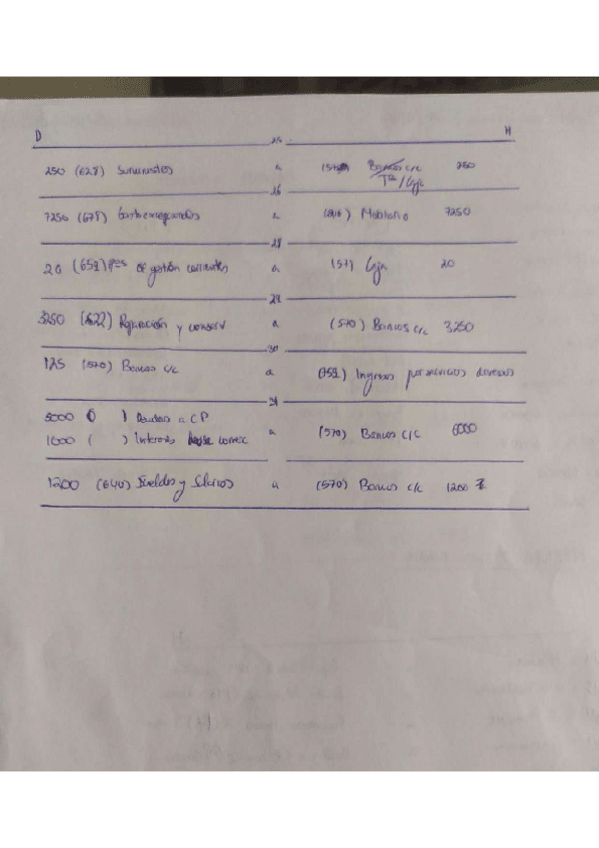 D H
25
250 (628) Suministros a Bancos c/c 250
Tª/Caja
26
7250 (678) Gastos excepcionales a Mobiliario 7250
28
20 (651) Pºs de gestión corrientes a (57) Caja 20
29
3250 (622) Reparación y conserv a (570) Bancos c/c 3.250
30
125 (570) Bancos c/c a (759) Ingresos por servicios diversos
31
5000 ( ) Deudas a CP
1000 ( ) Intereses a (570) Bancos c/c 6000
1200 (640) Sueldos y Salarios a (570) Bancos c/c 1200